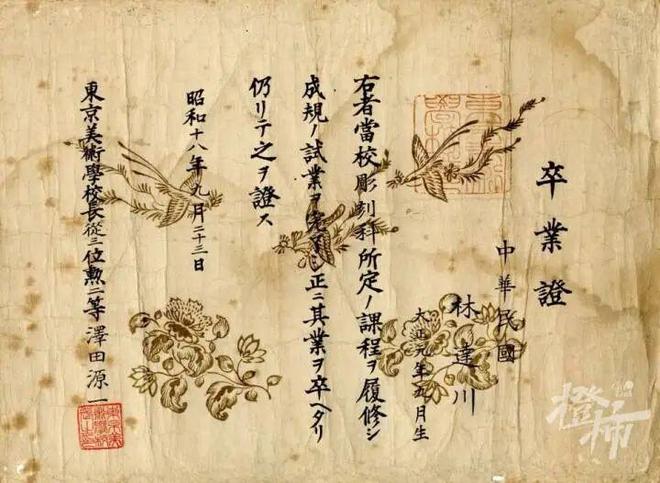 卒業證
中華民國
林達川
大正元年九月生
右者當校彫刻科所定ノ課程ヲ履修シ
成規ノ試業ヲ完了シ正ニ其業ヲ卒ヘタリ
仍リテ之ヲ證ス
昭和十八年九月二十三日
東京美術學校長從三位勲二等澤田源一
橙柿